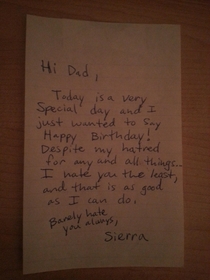 Hi Dad,
Today is a very
Special day and I
just wanted to Say
Happy Birthday!
Despite my hatred
for any and all things...
I hate you the least,
and that is as good
as I can do.
Barely hate
you always,
Sierra